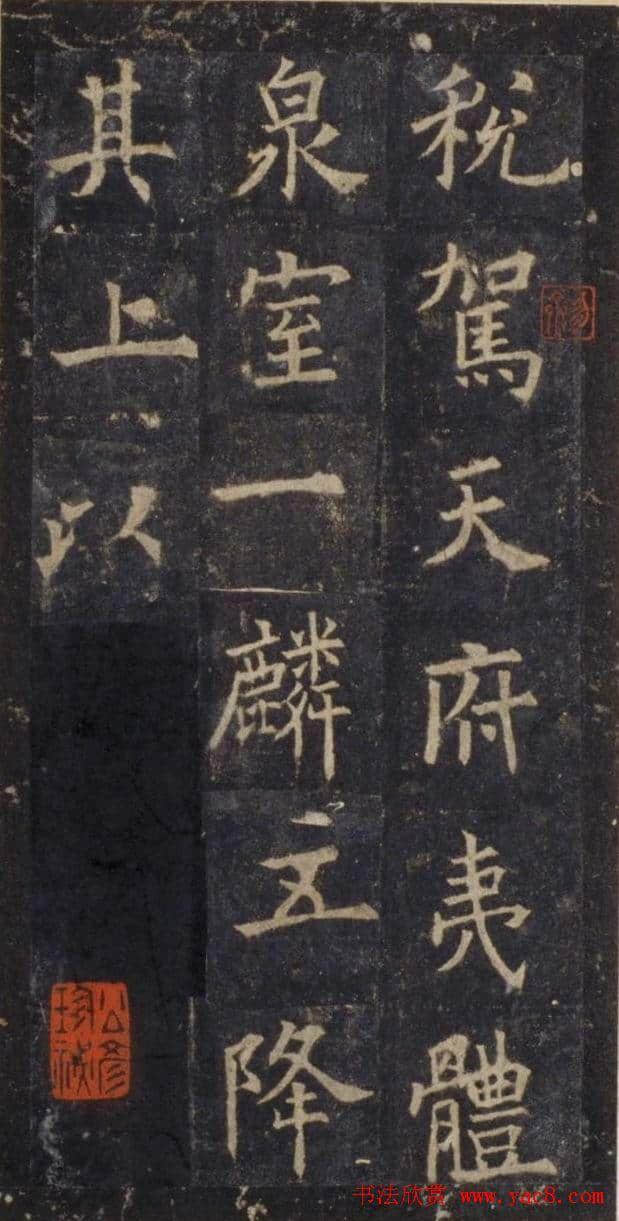 稅駕天府體
泉室一麟立降
其上以
书法欣赏 www.yac8.com